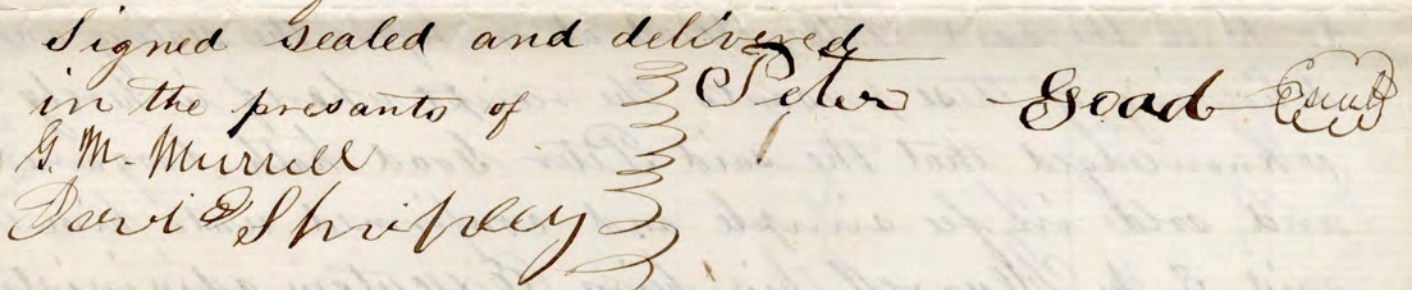 Signed sealed and delivered
in the presants of
G. M. Murrell
David Shipley
Peter Goad